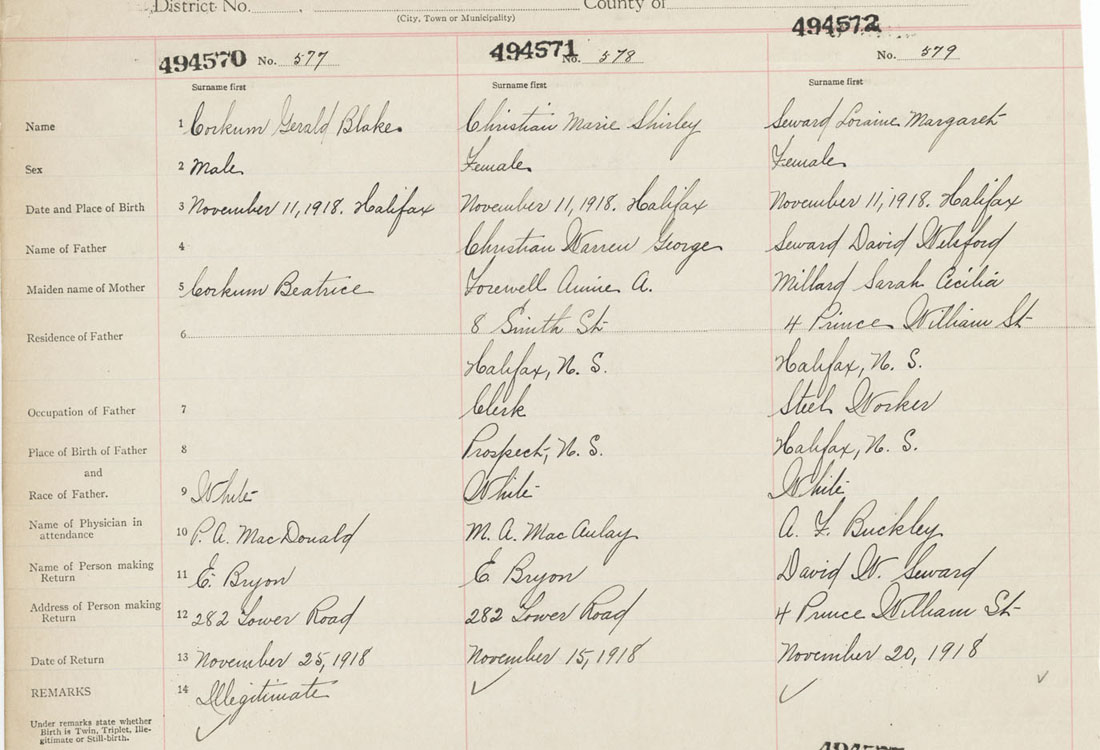 District No. County of
(City, Town or Municipality)
494570 No. 577 494571 No. 578 494572 No. 579
Surname first Surname first Surname first
Name 1 Corkum Gerald Blake. Christian Marie Shirley Seward Loraine Margaret
Sex 2 Male Female Female
Date and Place of Birth 3 November 11, 1918. Halifax November 11, 1918. Halifax November 11, 1918. Halifax
Name of Father 4 Christian Warren George Seward David Welsford
Maiden name of Mother 5 Corkum Beatrice Annie A. Millard Sarah Cecilia
Residence of Father 6 8 Smith St 4 Prince William St
Halifax, N. S. Halifax, N. S.
Occupation of Father 7 Clerk Steel Worker
Place of Birth of Father 8 Prospect, N. S. Halifax, N. S.
and
Race of Father. 9 White White White
Name of Physician in
attendance 10 P. A. MacDonald M. A. MacAulay A. F. Buckley
Name of Person making
Return 11 E. Bryon E. Bryon David W. Seward
Address of Person making
Return 12 282 Tower Road 282 Tower Road 4 Prince William St
Date of Return 13 November 25, 1918 November 15, 1918 November 20, 1918
REMARKS 14 Illegitimate
Under remarks state whether
Birth is Twin, Triplet, Ille-
gitimate or Still-birth.